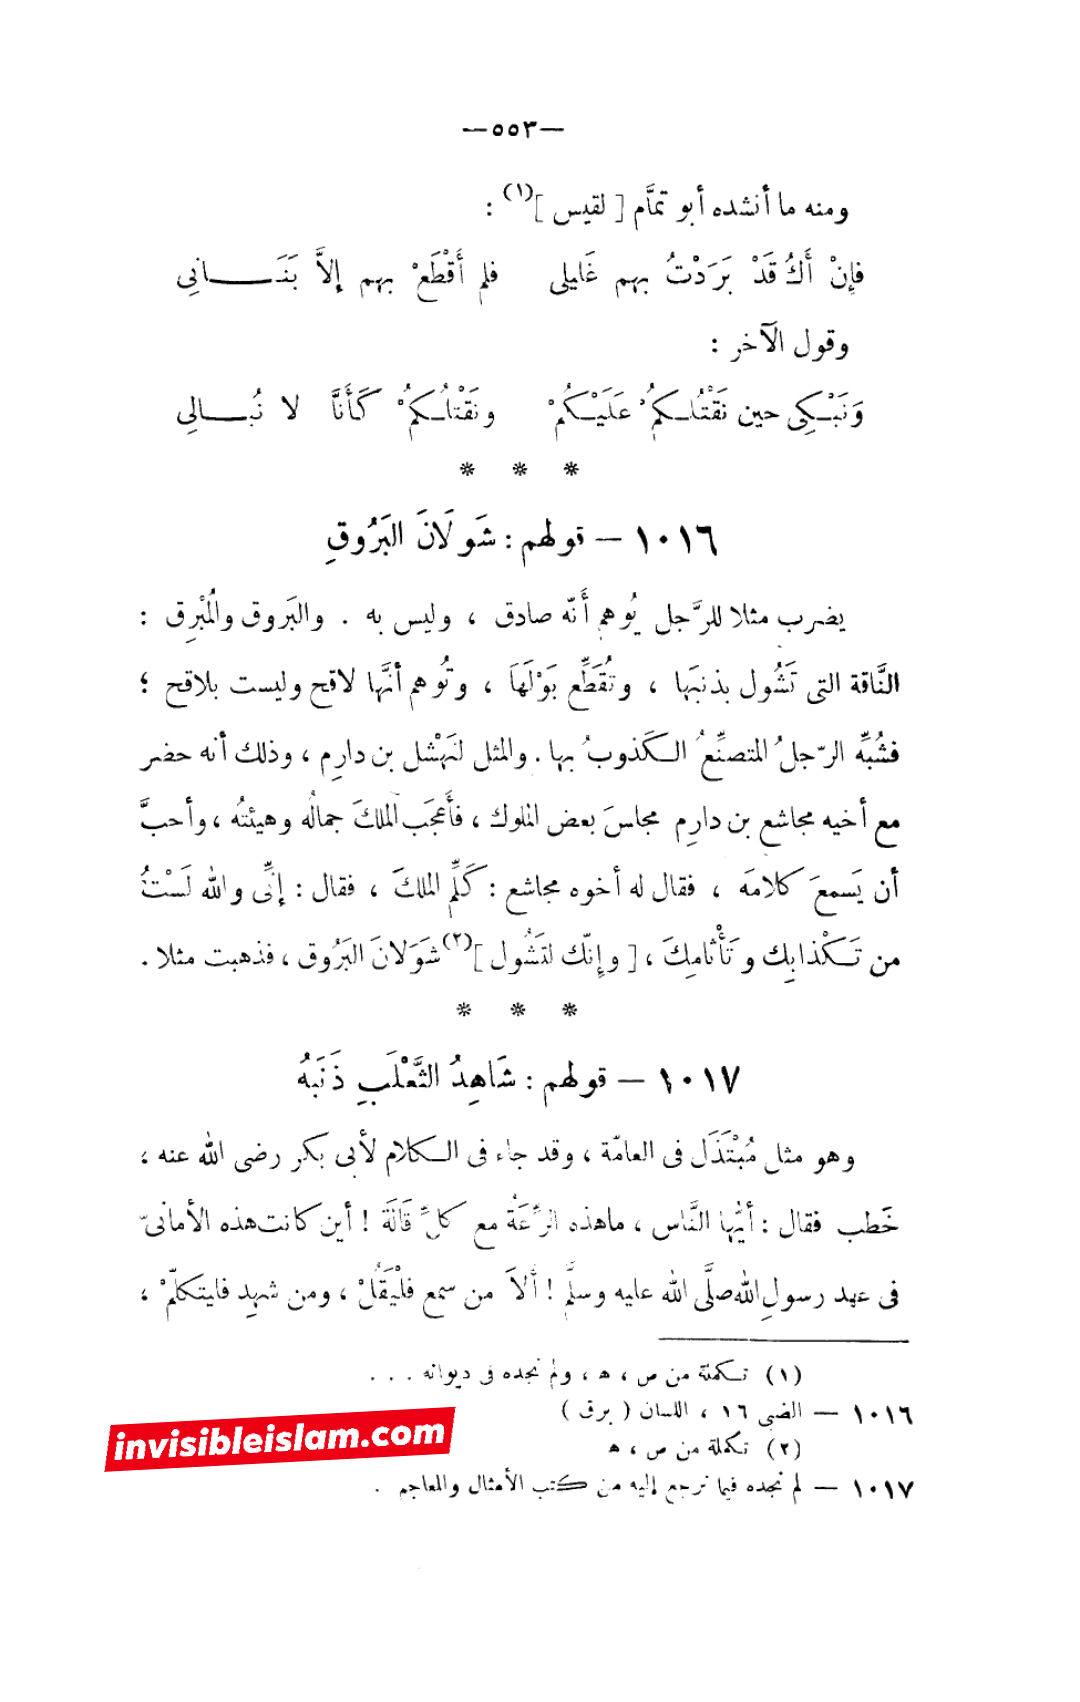 —٥٥٣—
ومنه ما أنشده أبو تمَّام [ لقيس ](١) :
فإِنْ أَكُ قَدْ بَرَدْتُ بهم غَليلى فلم أَقْطَعْ بهم إلاَّ بَنَــانِى
وقول الآخر :
وَنَبْكِى حين نَقْتُلكمُ عَلَيْكُمْ ونَقْتلُكمُ كَأَنَّا لا نُبــالِى
* * *
١٠١٦ – قولهم : شَوَلَانَ البَرُوقِ
يضرب مثلا للرَّجل يُوهم أَنّه صادق ، وليس به . والبَروق والمُبْرِق :
النَّاقة التى تَشُول بذنبَها ، وتُقَطِّع بَوْلَهَا ، وتُوهم أنَّها لاقح وليست بلاقح ؛
فشُبِّه الرّجلُ المتصنِّعُ الكَذوبُ بها . والمثل لنَهْشل بن دارِم ، وذلك أنه حضر
مع أخيه مجاشع بن دارِم مجلسَ بعض الملوك ، فأَعجَب الملكَ جمالُه وهيئتُه ، وأحبَّ
أن يَسمعَ كلامَه ، فقال له أخوه مجاشع : كَلِّم الملكَ ، فقال : إنِّى والله لَسْتُ
من تَكْذابِك وتَأْثامِكَ ، [ وإنّك لتَشُول ](٢) شَوَلانَ البَرُوق ، فذهبت مثلا .
* * *
١٠١٧ – قولهم : شَاهِدُ الثَّعْلَبِ ذَنَبَهُ
وهو مثل مُبْتَذَل فى العامّة ، وقد جاء فى الكلام لأبى بكر رضى الله عنه ،
خَطب فقال : أيّها النَّاس ، ماهذه الرِّعَةُ مع كلِّ قَالَة ! أين كانت هذه الأمانىّ
فى عهد رسولِ الله صلَّى الله عليه وسلَّم ! أَلاَ من سمع فلْيَقُلْ ، ومن شهِد فليتكلّمْ ،
(١) تكملة من ص ، ھ ، ولم نجده فى ديوانه . . .
١٠١٦ — الضبى ١٦ ، اللسان ( برق )
(٢) تكملة من ص ، ھ
١٠١٧ — لم نجده فيما نرجع إليه من كتب الأمثال والمعاجم .
invisibleislam.com